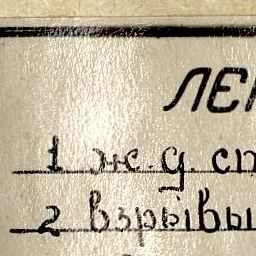 ЛЕ
1 ж.д. сп
2 взрывы